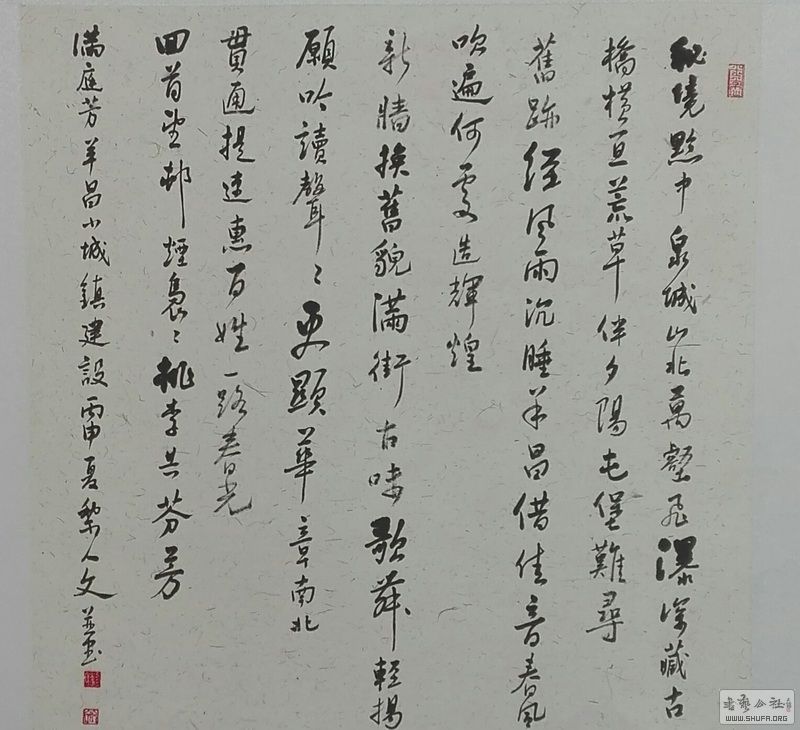 秘境黔中泉城山北萬壑飛瀑深藏古
橋橫亘荒草伴夕陽屯堡難尋
舊跡經風雨沉睡羊昌借佳音春風
吹遍何處造輝煌
新牆換舊貌滿街古味歌舞輕揚
願吟讀聲〻更顯華章南北
貫通提速惠百姓一路春光
回首望邨煙裊〻桃李共芬芳
滿庭芳羊昌小城鎮建設丙申夏黎人文并書
書藝公社
WWW.SHUFA.ORG